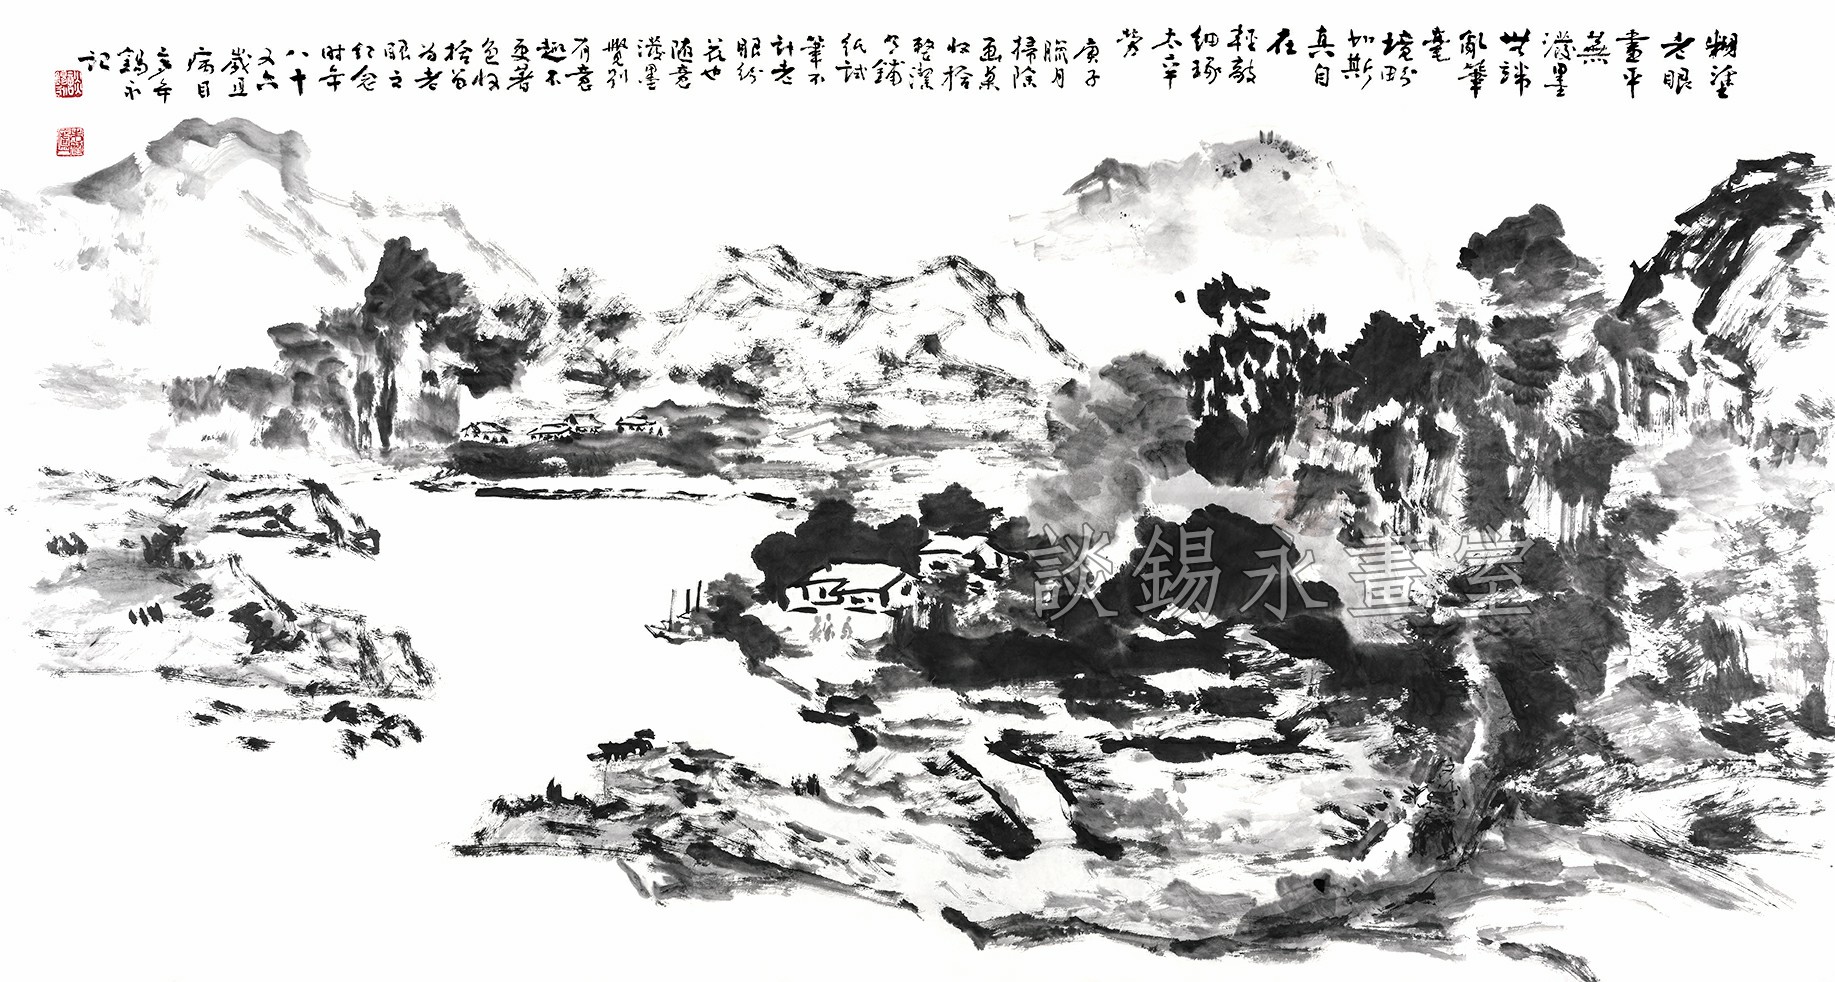 糊塗
老眼
畫平
蕪
潑墨
無端
亂筆
毫
境
如斯
真自
在
輕敲
細琢
太辛
勞
庚子
臘月
掃除
畫桌
收拾
整潔
鋪
紙試
筆不
計老
眼紛
花也
隨意
潑墨
覺別
有意
趣不
更著
色收
捨名
為老
眼之
紀念
時年
八十
又六
歲且
病目
多年
錫永
記
談錫永畫室